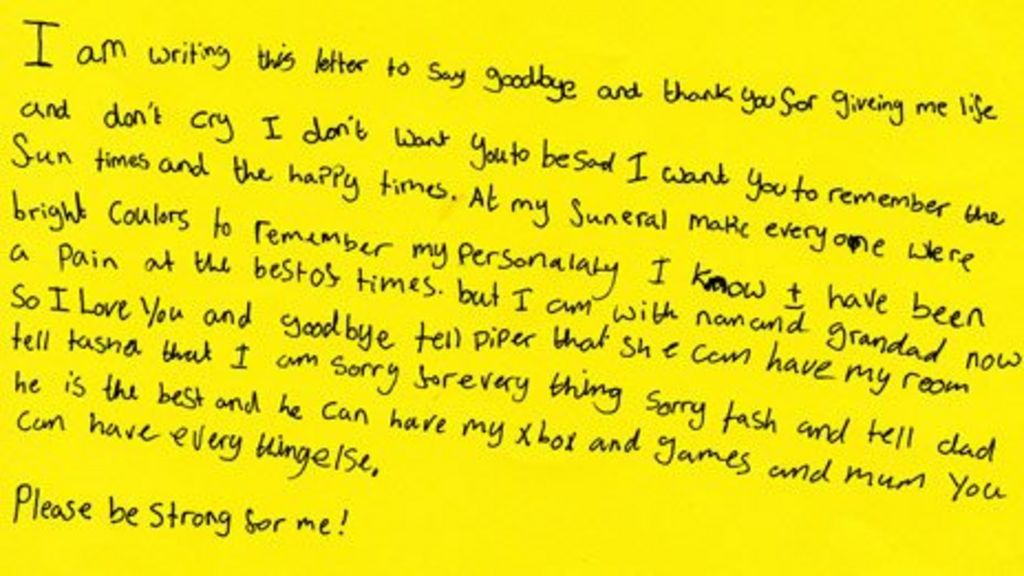 I am writing this letter to say goodbye and thank you for giveing me life
and don't cry I don't want you to be sad I want you to remember the
fun times and the happy times. At my funeral make everyone were
bright Coulors to remember my personalaty I know I have been
a pain at the best of times. but I am with nan and grandad now
So I Love You and goodbye tell piper that she can have my room
tell tasha that I am sorry for every thing sorry tash and tell dad
he is the best and he can have my xbox and games and mum You
can have every thing else.
Please be strong for me!